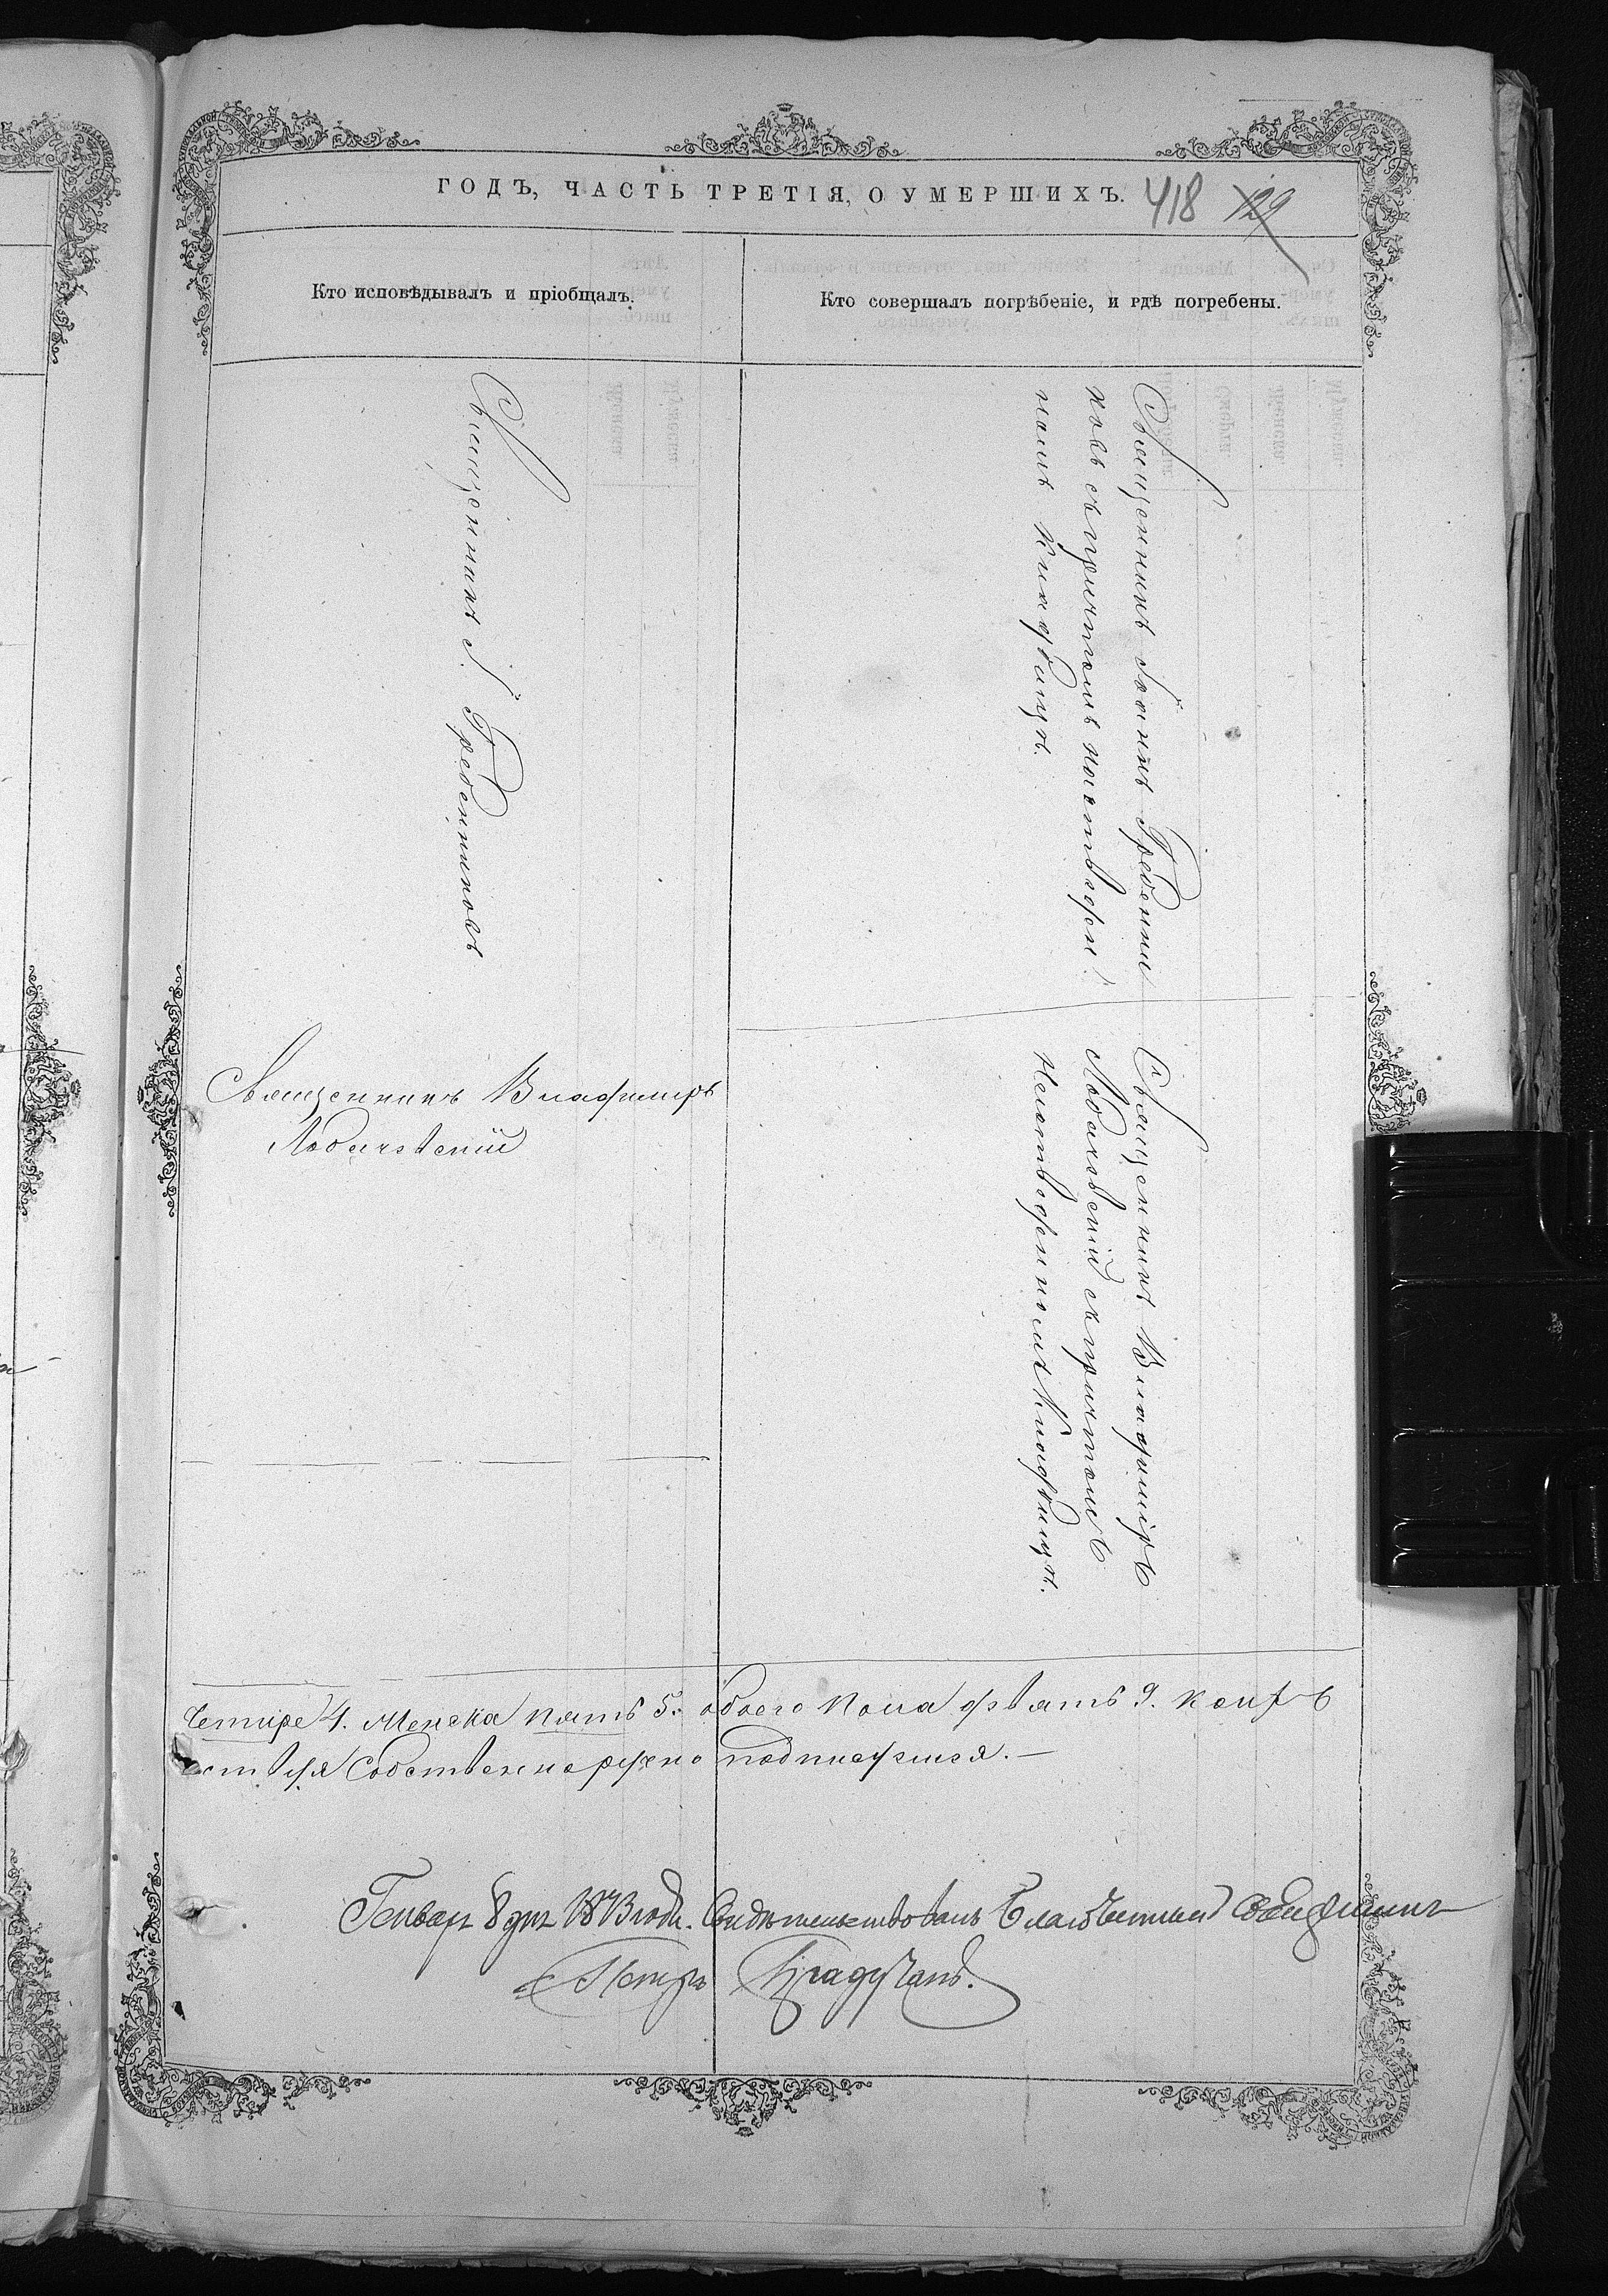 ГОДЪ, ЧАСТЬ ТРЕТІЯ, О УМЕРШИХЪ. 418 129
Кто исповѣдывалъ и пріобщалъ.
Кто совершалъ погрѣбеніе, и гдѣ погребены.
Священникъ І. Гребенниковъ
Священникъ Іоаннъ Гребенни
ковъ съ причтомъ на отведен
номъ кладбищѣ.
Священникъ Владиміръ
Священникъ Владиміръ
съ причтомъ
На отведенномъ кладбищѣ.
Четыре 4. Женска пять 5. обоего пола девять 9.
Собственноручно подписуемся.—
Генваря 8 дня года. Свидѣтельствовалъ Благочинный Священникъ
Петръ